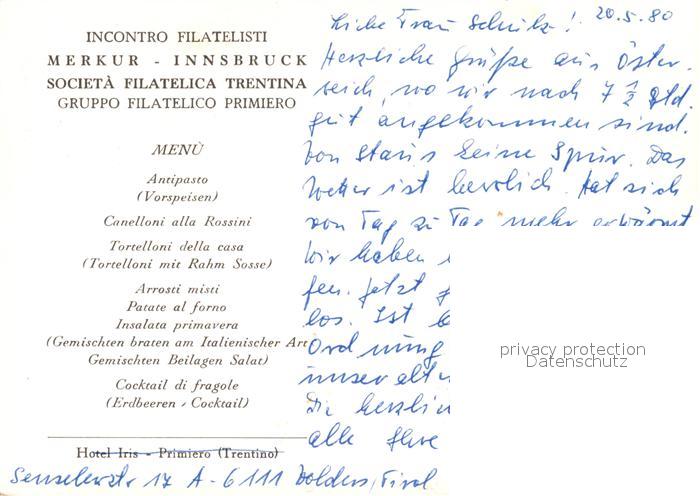 INCONTRO FILATELISTI
MERKUR - INNSBRUCK
SOCIETÀ FILATELICA TRENTINA
GRUPPO FILATELICO PRIMIERO
MENÙ
Antipasto
(Vorspeisen)
Canelloni alla Rossini
Tortelloni della casa
(Tortelloni mit Rahm Sosse)
Arrosti misti
Patate al forno
Insalata primavera
(Gemischten braten am Italienischer Art
Gemischten Beilagen Salat)
Cocktail di fragole
(Erdbeeren - Cocktail)
Hotel Iris - Primiero (Trentino)
20.5.80
Liebe Frau Schulz!
Herzliche Grüße aus Öster-
reich, wo wir nach 7 1/2 Std.
gut angekommen sind.
Von Staus keine Spur. Das
Wetter ist herrlich. Hat sich
von Tag zu Tag mehr erwärmt
Wir haben
fen. Jetzt
los. Ist
Ordnung
unser
Die herzlich
alle Ihre
17 A-6111 Volders, Tirol
privacy protection
Datenschutz